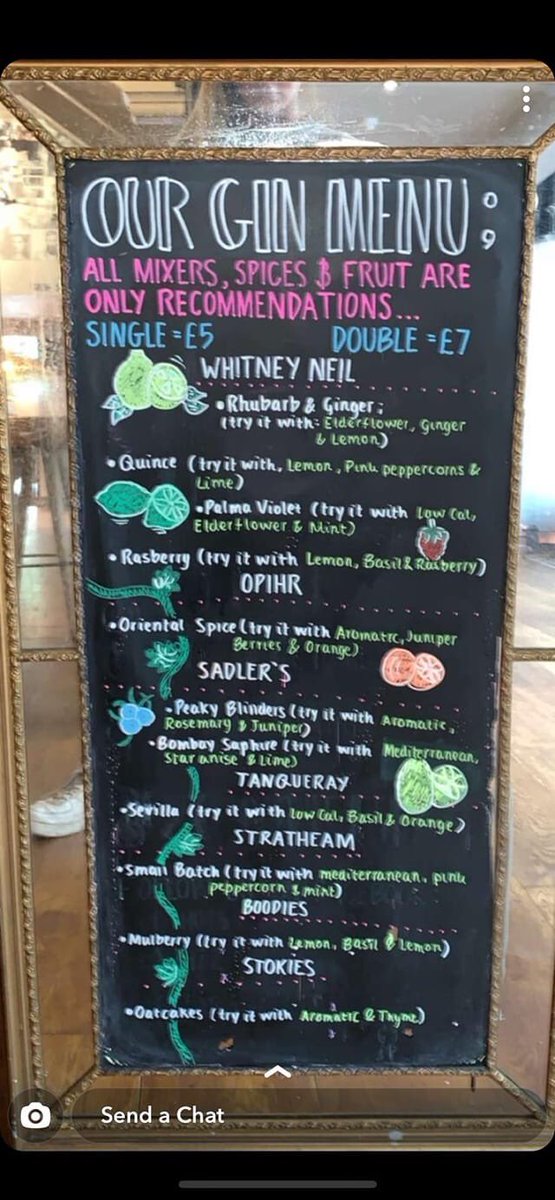 OUR GIN MENU:
ALL MIXERS, SPICES & FRUIT ARE
ONLY RECOMMENDATIONS...
SINGLE =£5 DOUBLE =£7
WHITNEY NEIL
•Rhubarb & Ginger;
(try it with: Elderflower, Ginger
& Lemon)
•Quince (try it with, Lemon, Pink peppercorns &
Lime)
•Palma Violet (try it with Low Cal,
Elderflower & Mint)
•Rasberry (try it with Lemon, Basil & Rasberry)
OPIHR
•Oriental Spice (try it with Aromatic, Juniper
Berries & Orange)
SADLER'S
•Peaky Blinders (try it with Aromatic,
Rosemary & Juniper)
•Bombay Saphire (try it with Mediterranean,
Star anise & Lime)
TANQUERAY
•Sevilla (try it with Low Cal, Basil & Orange)
STRATHEAM
•Small Batch (try it with mediterranean, pink
peppercorn & mint)
BOODIES
•Mulberry (try it with Lemon, Basil & Lemon)
STOKIES
•Oatcakes (try it with Aromatic & Thyme)
Send a Chat